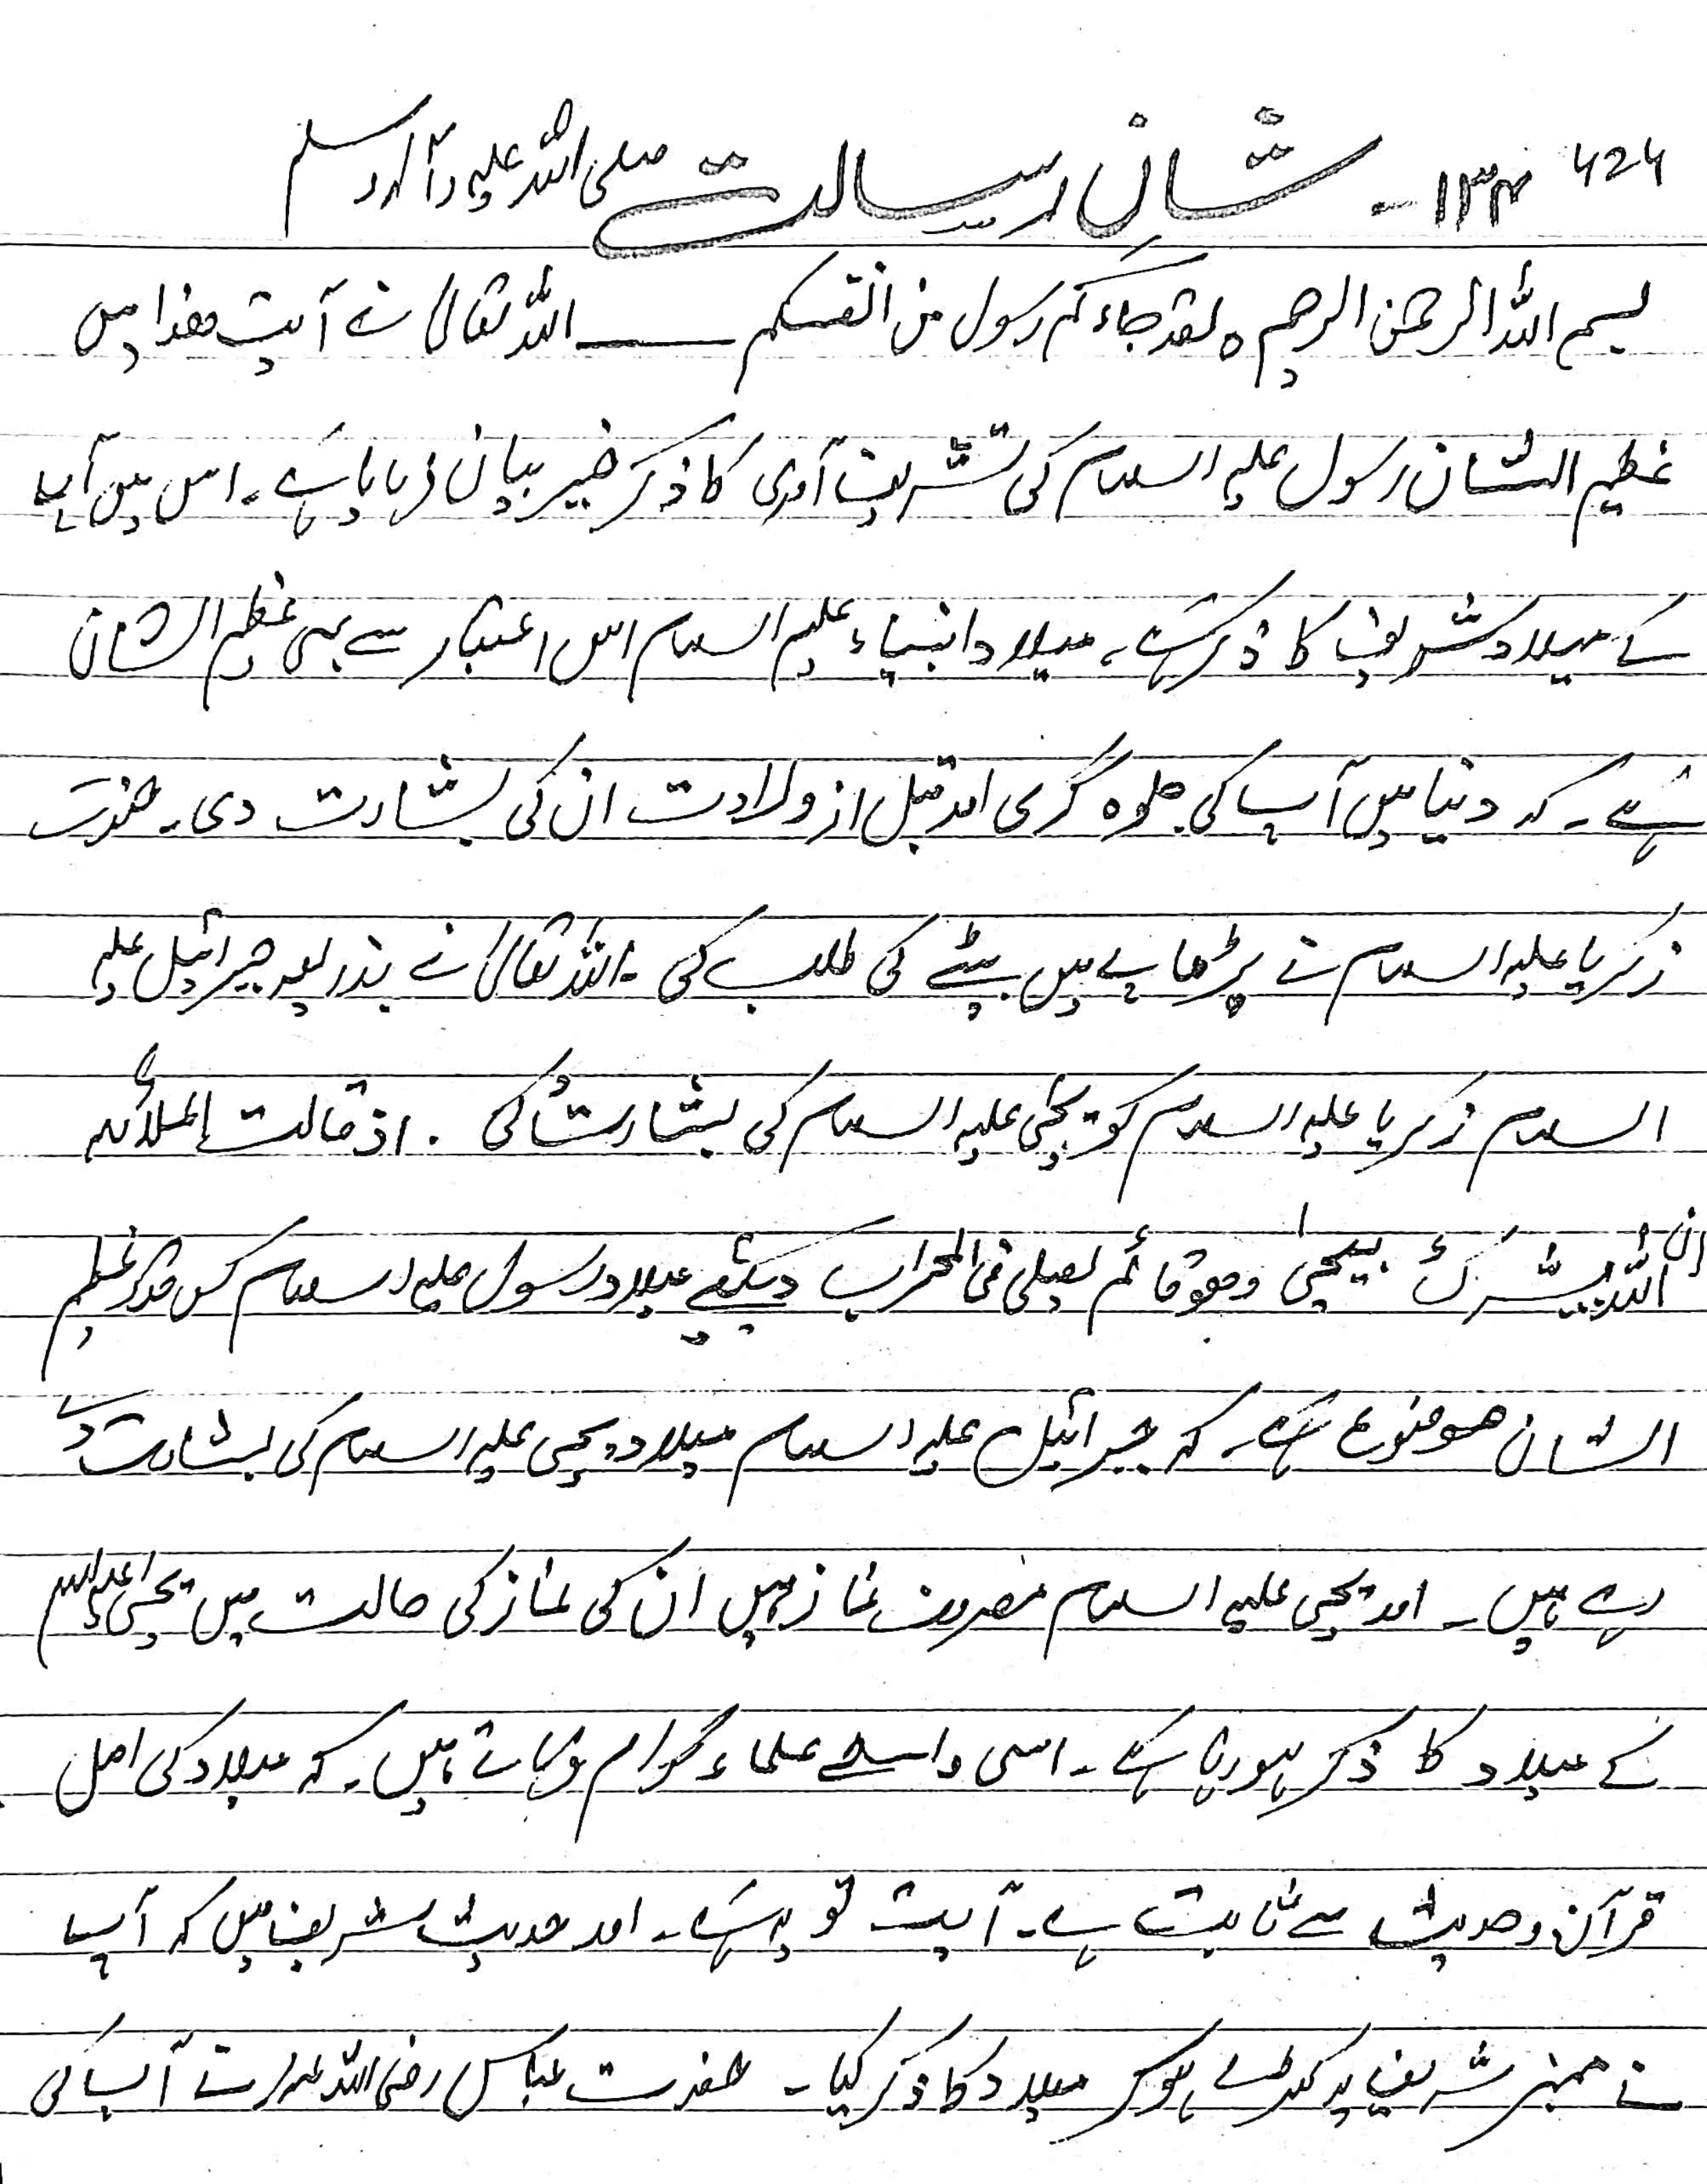 ۶۲۶ ۱۳۴۔ شان رسالت صلی اللہ علیہ وآلہ وسلم
بسم اللہ الرحمن الرحیم ہ لقد جاءکم رسول من انفسکم ــــــ اللہ تعالیٰ نے آیت ھذا میں
عظیم الشان رسول علیہ السلام کی تشریف آوری کا ذکر خیر بیان فرمایا ہے۔ اس میں آپ
کے میلاد شریف کا ذکر ہے، میلاد انبیاء علیہم السلام اس اعتبار سے بھی عظیم الشان
ہے۔ کہ دنیا میں آپ کی جلوہ گری اور قبل از ولادت ان کی بشارت دی۔ حضرت
زکریا علیہ السلام نے بڑھاپے میں بیٹے کی طلب کی۔ اللہ تعالیٰ نے بذریعہ جبرائیل علیہ
السلام زکریا علیہ السلام کو یحیٰی علیہ السلام کی بشارت دی۔ اذ قالت الملائکۃ
ان اللہ یبشرک بیحیٰی وھو قائم یصلی فی المحراب دیکھئے میلاد رسول علیہ السلام کس قدر عظیم
الشان موضوع ہے۔ کہ جبرائیل علیہ السلام میلاد یحیی علیہ السلام کی بشارت دے
رہے ہیں۔ اور یحیی علیہ السلام مصروف نماز ہیں ان کی نماز کی حالت میں یحیٰی علیہ السلام
کے میلاد کا ذکر ہو رہا ہے۔ اسی واسطے علماء کرام فرماتے ہیں۔ کہ میلاد کی اصل
قرآن و حدیث سے ثابت ہے۔ آیت تو یہ ہے۔ اور حدیث شریف میں کہ آپ
نے ممبر شریف پر کھڑے ہو کر میلاد کا ذکر کیا۔ حضرت عباس رضی اللہ عنہ نے آپ کی